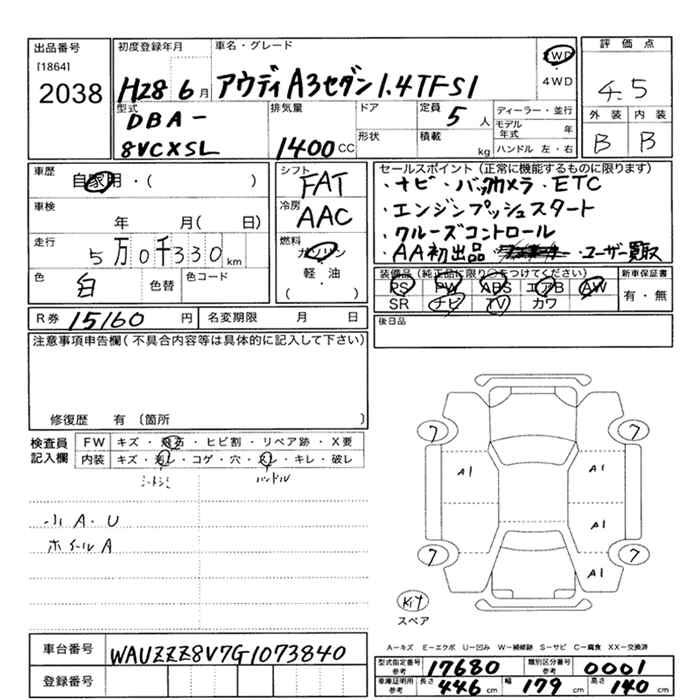 出品番号 初度登録年月 車名・グレード 評価点
[1864]
2038 H28 6月 アウディA3セダン1.4TFSI 2WD 4WD 4.5
型式 排気量 ドア 定員 5人 ディーラー・並行 外装 内装
DBA-
8VCXSL 1400CC 形状 積載 kg モデル年式 年 B B
ハンドル 左・右
車歴 自家用・( ) シフト FAT セールスポイント(正常に機能するものに限ります)
・ナビ・バックカメラ・ETC
車検 年 月( 日) 冷房 AAC ・エンジンプッシュスタート
・クルーズコントロール
走行 5万0千330km 燃料 ガソリン ・AA初出品 ・ユーザー買取
軽・油
( )
色 白 色替 色コード 装備品(純正品に限り○をつけてください) 新車保証書
PS PW ABS エアB AW 有・無
SR ナビ TV カワ
R券 15160円 名変期限 月 日 後日品
注意事項申告欄(不具合内容等は具体的に記入して下さい)
修復歴 有(箇所 )
検査員記入欄 FW キズ・飛石・ヒビ割・リペア跡・X要
内装 キズ・汚レ・コゲ・穴・スレ・キレ・破レ
シートシミ ハンドル
小A・U
ホイールA
7 7
A1 A1
A1
7 7
A1
Kit
スペア
A-キズ E-エクボ U-凹み W-補修跡 S-サビ C-腐食 XX-交換済
車台番号 WAUZZZ8V7G1073840 型式指定番号 参考 17680 類別区分番号 参考 0001
登録番号 車庫証明用 参考 長さ 446cm 幅 179cm 高さ 140cm